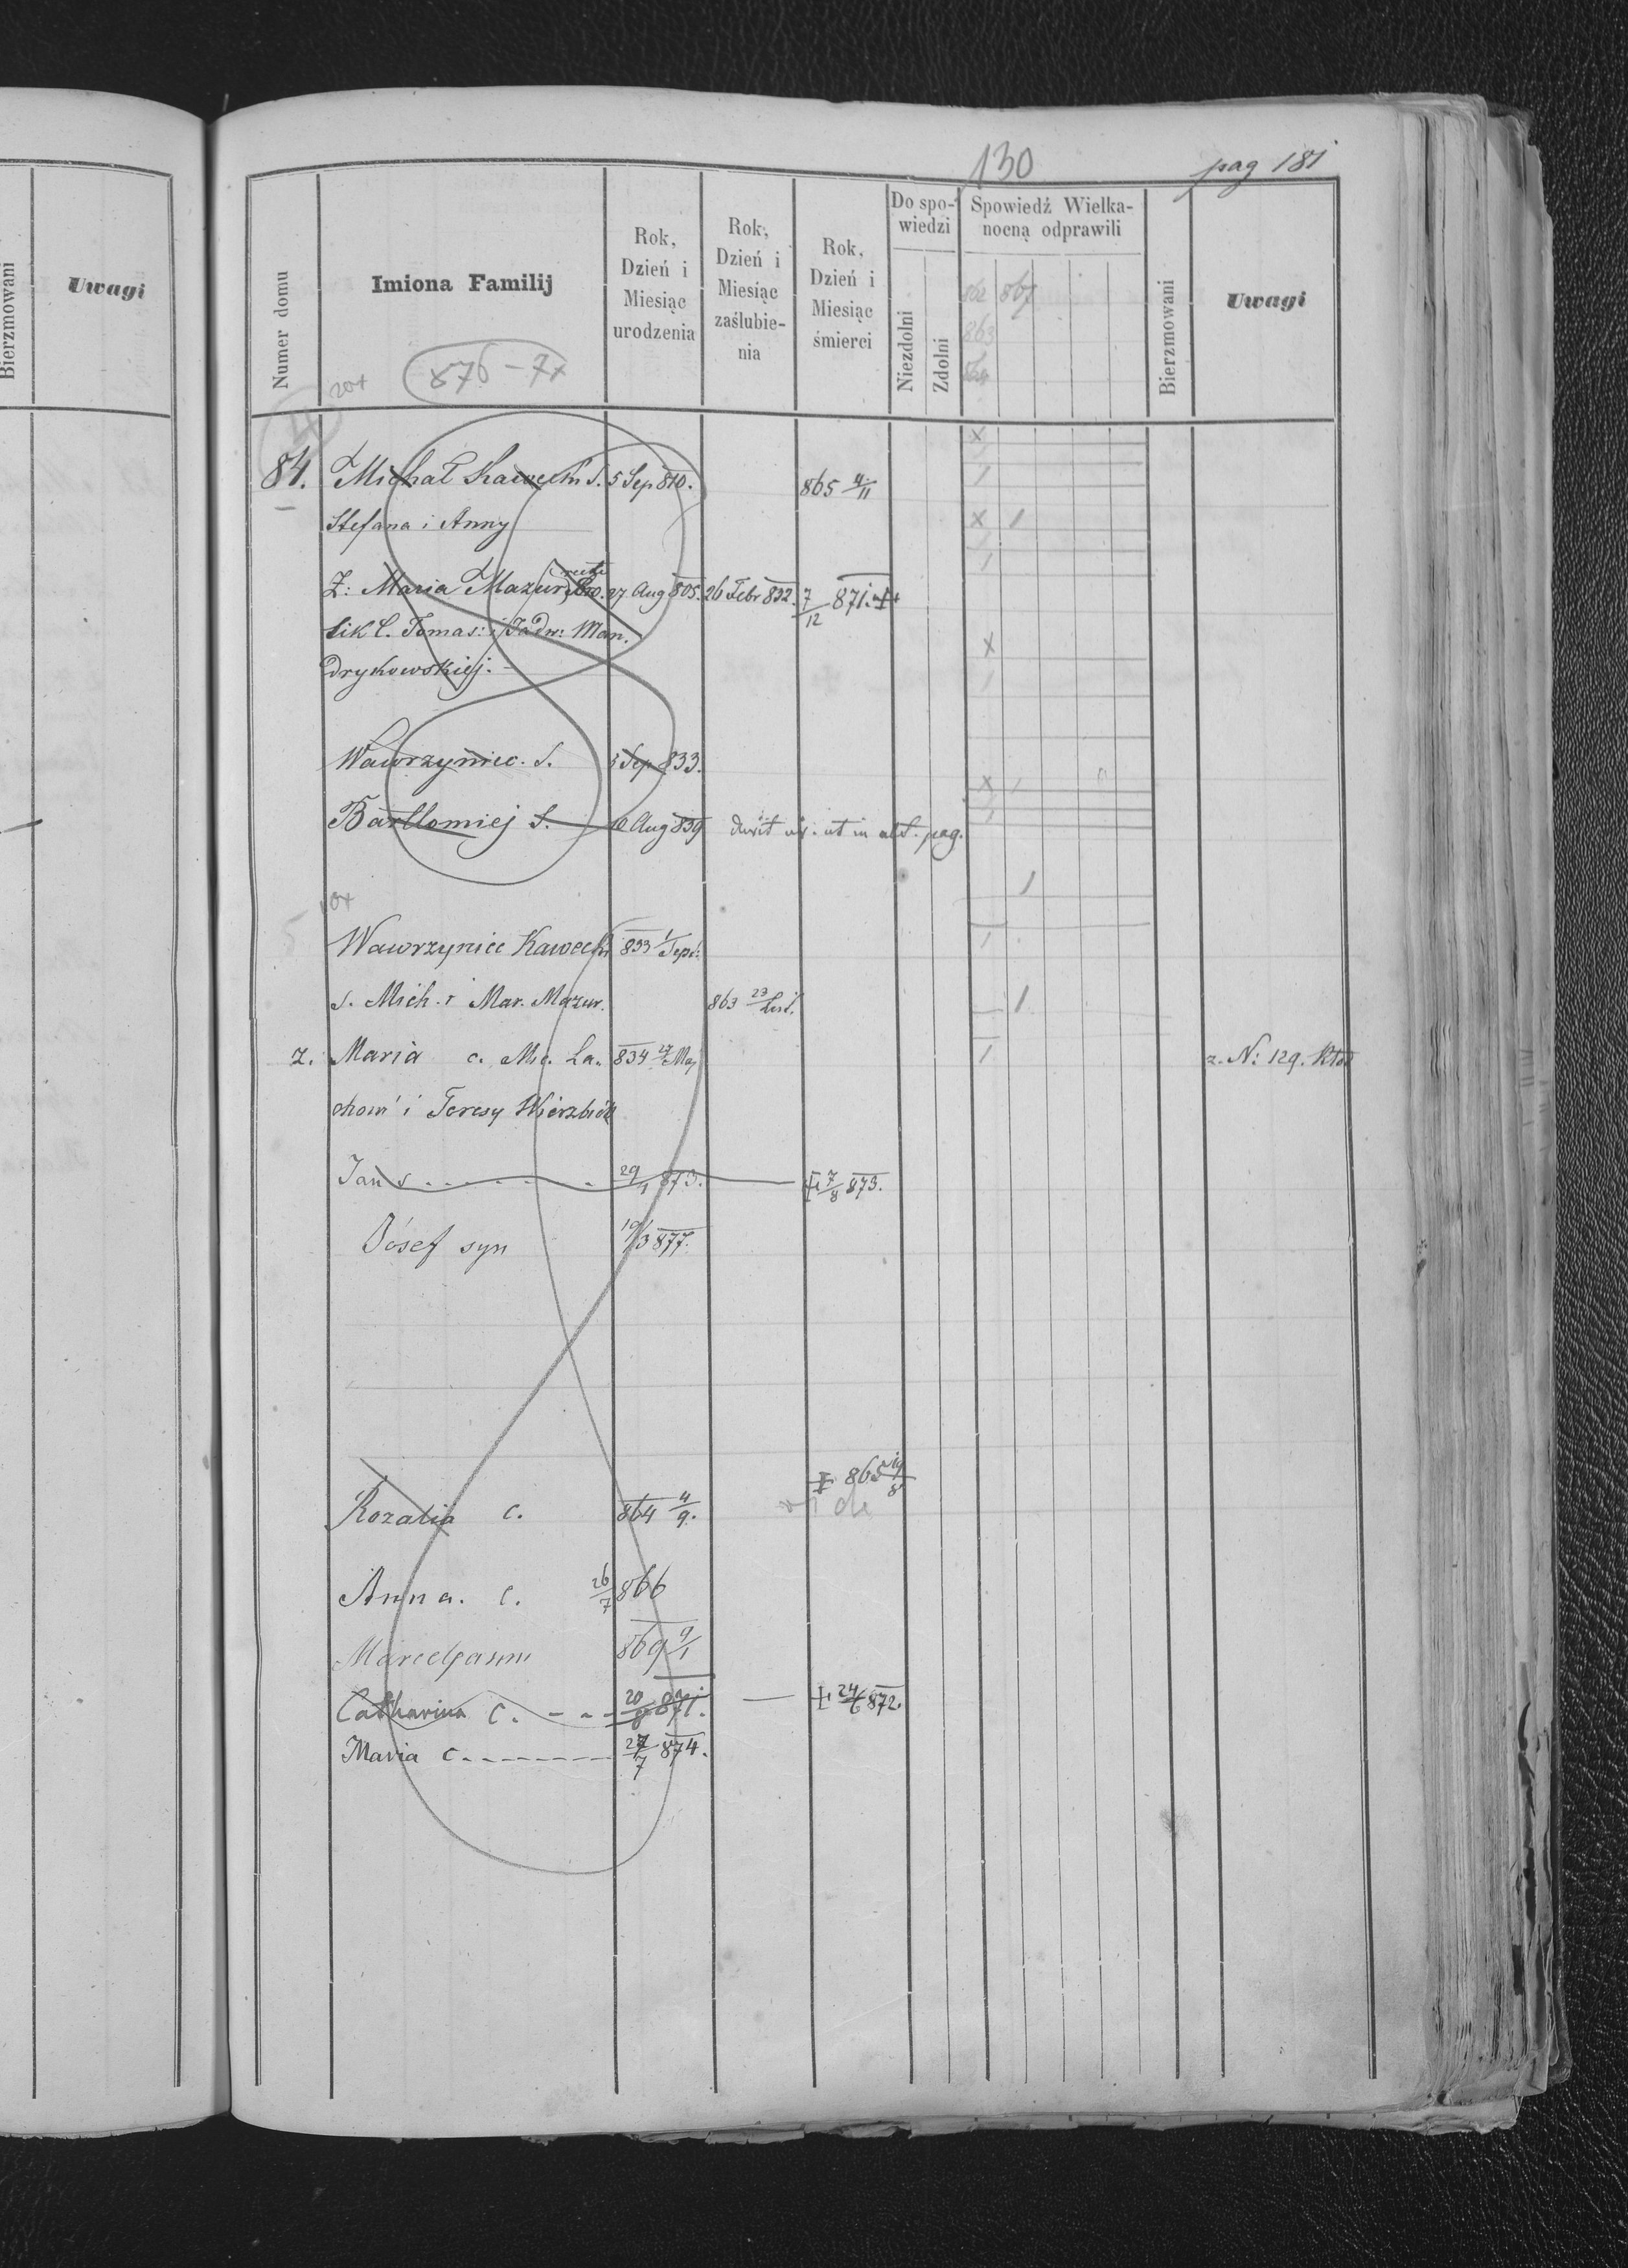 130
pag 181
Bierzmowani
Uwagi
Numer domu
Imiona Familij
Rok, Dzień i Miesiąc urodzenia
Rok, Dzień i Miesiąc zaślubienia
Rok, Dzień i Miesiąc śmierci
Do spowiedzi
Niezdolni
Zdolni
Spowiedź Wielkanocną odprawili
862 867
863
864
Bierzmowani
Uwagi
20+
876 - 7+
84. Michał Kawecki S. 5 Sep 810. 865 4/11
Stefana i Anny
Ż: Maria Mazur recte 27 Aug 805. 26 Febr 832. 7/12 871. ++
sik C. Tomas: i Jadw: Man.
drykowskiej. -
Wawrzyniec. S. 5 Sep 833.
Bartłomiej S. 16 Aug 839 ut in pag.
10+
Wawrzyniec Kawecki 833 1/Sept.
S. Mich. i Mar. Mazur. 863 23/List.
Z. Maria c. Mic. La. 834 27/Maj z. N: 129.
chow i Teresy Wierzbick
Jan s. 29/1 873. + 7/8 873.
Józef syn 19/3 877.
+ 865 19/8
Rozalia C. 864 4/9.
Anna. C. 26/7 866
869 9/1
Catharina C. 20/8 871. + 24/6 872.
Maria C. 27/7 874.